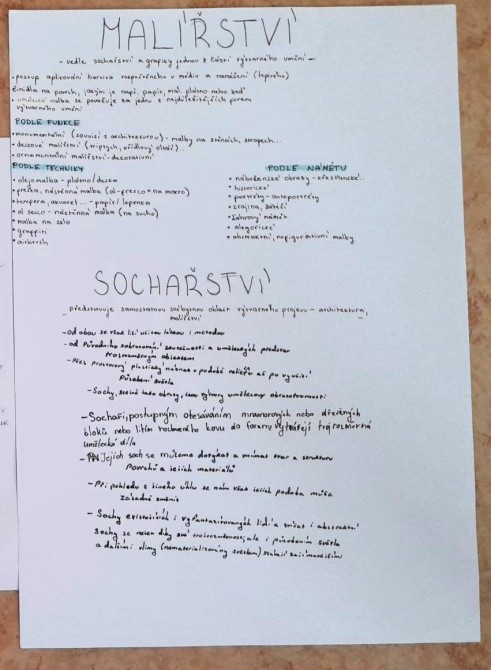 MALÍŘSTVÍ
- vedle sochařství a grafiky jednou z částí výtvarného umění -
• postup aplikování barviva rozptýleného v médiu a nanášení (lepivého)
činidla na povrch, jakým je např. papír, mal. plátno nebo zeď
• umělecká malba se považuje za jednu z nejdůležitějších forem
výtvarného umění
PODLE FUNKCE
• monumentální (souvisí s architekturou) - malby na stěnách, stropech...
• deskové malířství (triptych, křídlový oltář)..
• ornamentální malířství - dekorativní
PODLE TECHNIKY
• olejomalba - plátno/deska
• freska, nástěnná malba (al-fresco = na mokro)
• tempera, akvarel... - papír/lepenka
• al secco - nástěnná malba (na sucho)
• malba na sklo
• graffiti
• airbrush
PODLE NÁMĚTU
• náboženské obrazy - křesťanské..
• historické
• portréty - autoportréty
• krajina, zátiší
• žánrový námět
• alegorické
• abstraktní, nefigurativní malby
SOCHAŘSTVÍ
- představuje samostatnou svébytnou oblast výtvarného projevu - architektura,
malířství
- od obou se však liší učitou látkou i metodou
- od původního zobrazování skutečnosti a uměleckých představ
trojrozměrným obrazem
- Přes prostorový plastický náznak v podobě reliéfu až po využití
Působení světla
- Sochy, stejně jako obrazy, jsou výtvory umělcovy obrazotvornosti
- Sochaři, postupným otesáváním mramorových nebo dřevěných
bloků nebo litím roztaveného kovu do formy vytvářejí trojrozměrná
umělecká díla
- Jejich soch se můžeme dotýkat a vnímat tvar a strukturu
Povrchů a jejich materiálů
- Při pohledu z jiného úhlu se nám však jejich podoba může
zásadně změnit
- Sochy existujících i vyfantazírovaných lidí a zvířat i abstraktní
Sochy se nejen díky své trojrozměrnosti, ale i působením světla
a dalšími vlivy (nematerializovaný světem) stávají zajímavějšími